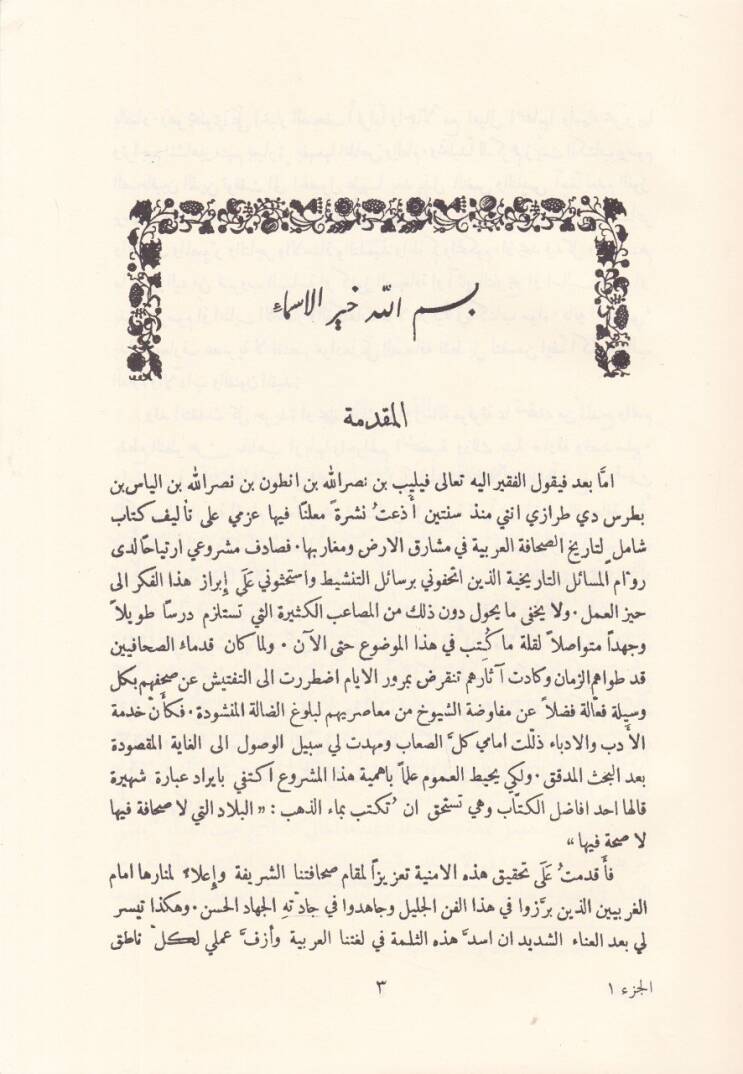 بسم الله خير الاسماء
المقدمة
امَّا بعد فيقول الفقير اليه تعالى فيليب بن نصرالله بن انطون بن نصرالله بن الياس بن
بطرس دي طرازي انني منذ سنتين أَذعتُ نشرةً معلناً فيها عزمي على تأليف كتاب
شامل لتاريخ الصحافة العربية في مشارق الارض ومغاربها. فصادف مشروعي ارتياحاً لدى
روَّام المسائل التاريخية الذين اتحفوني برسائل التنشيط واستحثوني عَلَى إِبراز هذا الفكر الى
حيز العمل. ولا يخفى ما يحول دون ذلك من المصاعب الكثيرة التي تستلزم درساً طويلاً
وجهداً متواصلاً لقلة ما كُتِب في هذا الموضوع حتى الآن. ولما كان قدماء الصحافيين
قد طواهم الزمان وكادت آثارهم تنقرض بمرور الايام اضطررت الى التفتيش عن صحفهم بكل
وسيلة فعَّالة فضلاً عن مفاوضة الشيوخ من معاصريهم لبلوغ الضالة المنشودة. فكأَنَّ خدمة
الأَدب والادباء ذلَّلت امامي كلَّ الصعاب ومهدت لي سبيل الوصول الى الغاية المقصودة
بعد البحث المدقق. ولكي يحيط العموم علماً باهمية هذا المشروع اكتفي بايراد عبارة شهيرة
قالها احد افاضل الكتَّاب وهي تستحق ان تُكتب بماء الذهب: «البلاد التي لا صحافة فيها
لا صحة فيها»
فأَقدمتُ عَلَى تحقيق هذه الامنية تعزيزاً لمقام صحافتنا الشريفة وإِعلاءً لمنارها امام
الغربيين الذين برَّزوا في هذا الفن الجليل وجاهدوا في جادَّتهِ الجهاد الحسن. وهكذا تيسر
لي بعد العناء الشديد ان اسدَّ هذه الثلمة في لغتنا العربية وأزفَّ عملي لكلّ ناطق
الجزء ١
٣